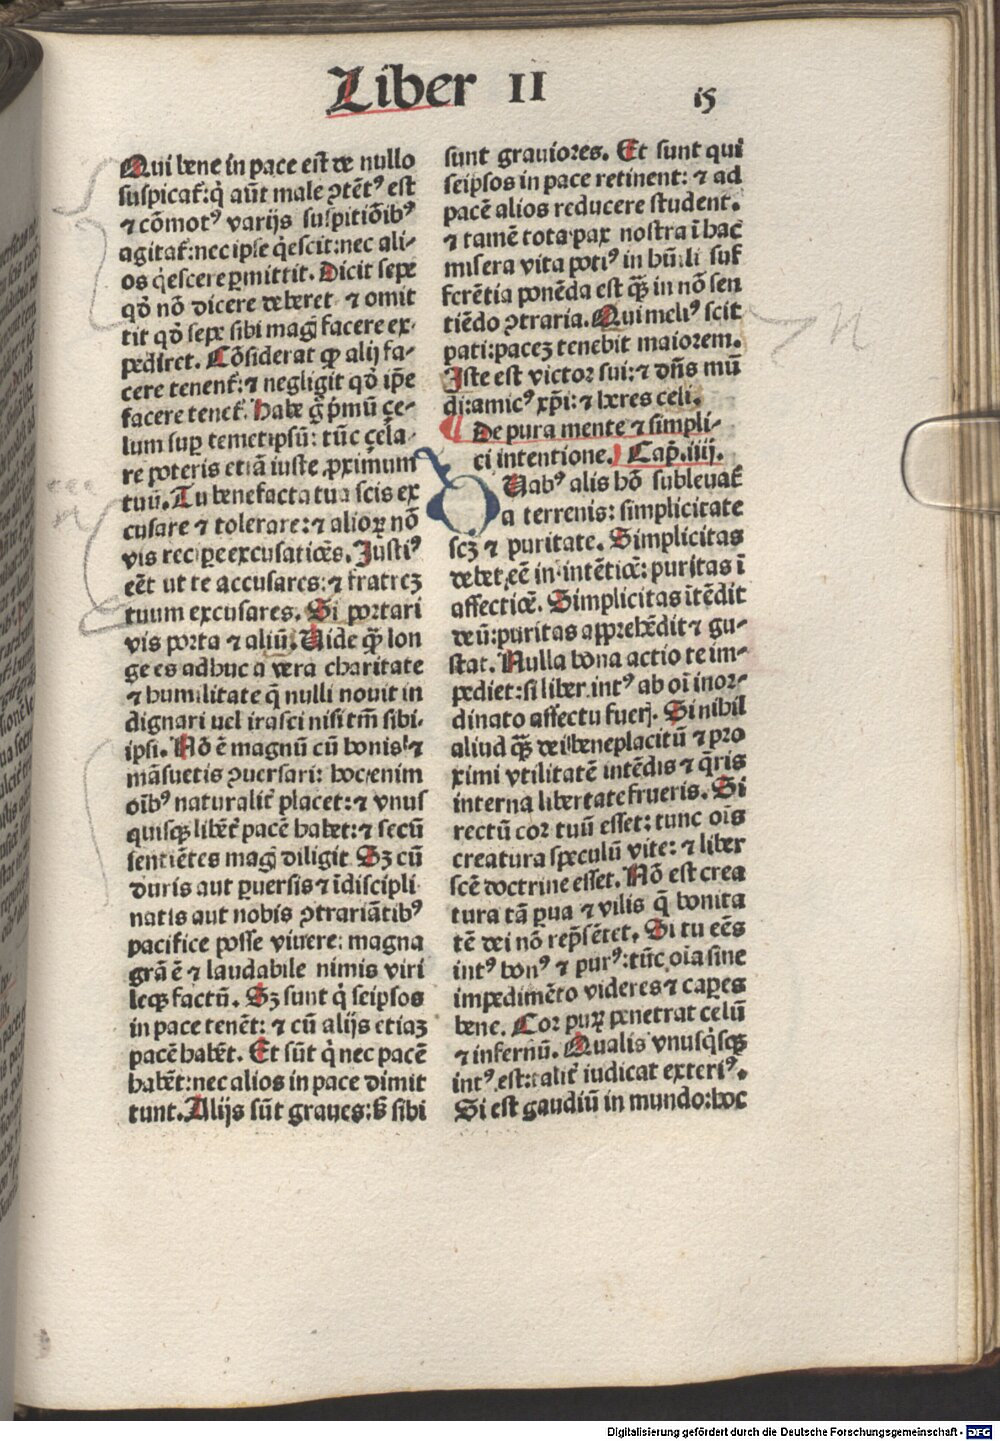 Liber II
15
Qui bene in pace est de nullo
suspicat᷑: q̇ aūt male ꝯtēt⁹ est
⁊ cōmot⁹ varijs suspitiōib⁹
agitat᷑: nec ipse q̇escit: nec ali-
os q̇escere ꝑmittit. Dicit sepe
qd̛ nō dicere deberet ⁊ omit
tit qd̛ sepe sibi mag᷑ facere ex-
pediret. Cōsiderat ꝙ alij fa-
cere tenent᷑: ⁊ negligit qd̛ ip̄e
facere tenet᷑. Habe g̊ p̛mū çe-
lum suꝑ temetipsū: tūc çela-
re poteris etiā iuste ꝓximum
tuū. Tu bene facta tua scis ex
cusare ⁊ tolerare: ⁊ alioꝝ nō
vis recipe excusatiōes. Justi⁹
eēt ut te accusares: ⁊ fratreꝫ
tuum excusares. Si portari
vis porta ⁊ aliū. Uide ꝙ̄ lon
ge es adhuc a vera charitate
⁊ humilitate q̄ nulli nouit in
dignari uel irasci nisi tm̄ sibi-
ipsi. Nō ē magnū cū bonis ⁊
māsuetis ꝯuersari: hoc enim
oīb⁹ naturalit᷑ placet: ⁊ vnus
quisqꝫ libēt᷑ pacē habet: ⁊ secū
sentiētes mag᷑ diligit Sꝫ cū
duris aut ꝑuersis ⁊ īdiscipli
natis aut nobis ꝯtrariātib⁹
pacifice posse viuere: magna
grā ē ⁊ laudabile nimis viri
leqꝫ factū. Sꝫ sunt q̇ seipsos
in pace tenēt: ⁊ cū alijs etiaꝫ
pacē habēt. Et sūt q̇ nec pacē
habēt: nec alios in pace dimit
tunt. Alijs sūt graues: sꝫ sibi
sunt grauiores. Et sunt qui
seipsos in pace retinent: ⁊ ad
pacē alios reducere student.
⁊ tamē tota pax nostra ī hac
misera vita poti⁹ in hūili suf
ferētia ponēda est ꝙ̄ in nō sen
tiēdo ꝯtraria. Qui meli⁹ scit
pati: paceꝫ tenebit maiorem.
Iste est victor sui: ⁊ dn̄s mū
di: amic⁹ xp̄i: ⁊ heres celi.
¶ De pura mente ⁊ simpli-
ci intentione. Cap̄. iiij.
DUab⁹ alis hō subleuat᷑
a terrenis: simplicitate
scꝫ ⁊ puritate. Simplicitas
debet eē in intētiōe: puritas ī
affectiōe. Simplicitas ītēdit
deū: puritas apprehēdit ⁊ gu-
stat. Nulla bona actio te im-
pediet: si liber int⁹ ab oī inor-
dinato affectu fuerꝭ. Si nihil
aliud ꝙ̄ dei beneplacitū ⁊ pro
ximi vtilitatē intēdis ⁊ q̄ris
interna libertate frueris. Si
rectū cor tuū esset: tunc oīs
creatura speculū vite: ⁊ liber
scē doctrine esset. Nō est crea
tura tā ꝑua ⁊ vilis q̄ bonita
tē dei nō rep̄sētet. Si tu eēs
int⁹ bon⁹ ⁊ pur⁹: tūc oīa sine
impedimēto videres ⁊ caperes
bene. Cor puꝝ penetrat celū
⁊ infernū. Qualis vnusq̇sqꝫ
int⁹ est: talit᷑ iudicat exteri⁹.
Si est gaudiū in mundo: hoc
Digitalisierung gefördert durch die Deutsche Forschungsgemeinschaft - DFG